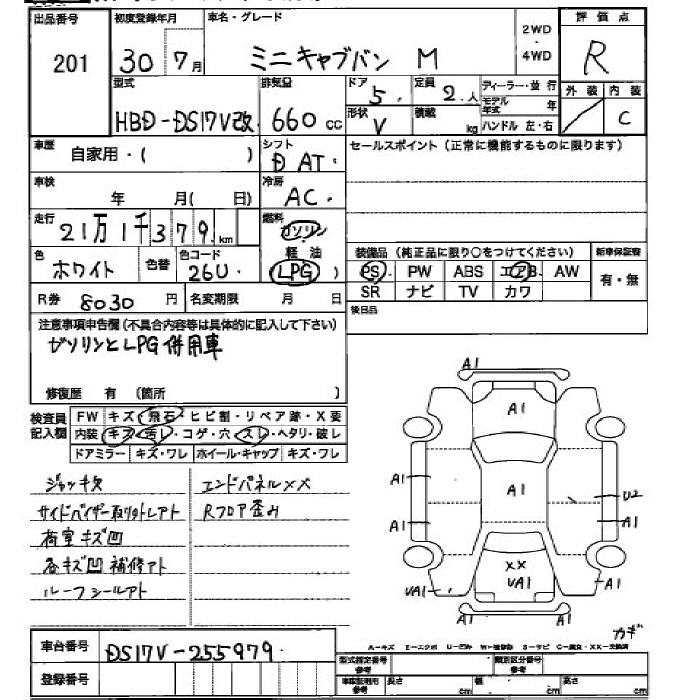 出品番号 初度登録年月 車名・グレード 2WD・4WD 評価点
201 30年7月 ミニキャブバン M R
型式 排気量 ドア 定員 ディーラー・並行 外装 内装
HBD-DS17V改 660cc 5 2人 モデル年式 年 C
形状 V 積載 kg ハンドル 左・右
車歴 自家用・( ) シフト DAT セールスポイント(正常に機能するものに限ります)
車検 年 月( 日) 冷房 AC
走行 21万1千379km 燃料 ガソリン 軽油 (LPG)
色 ホワイト 色替 色コード 26U 装備品(純正品に限り○をつけてください) 新車保証書
PS PW ABS エアB AW 有・無
R券 8030円 名変期限 月 日 SR ナビ TV カワ
注意事項申告欄(不具合内容等は具体的に記入して下さい) 後日品
ガソリンとLPG併用車
修復歴 有 (箇所 )
検査員記入欄 FW キズ・飛石・ヒビ割・リペア跡・X要
内装 キズ・汚レ・コゲ・穴・スレ・ヘタリ・破レ
ドアミラー キズ・ワレ ホイール・キャップ キズ・ワレ
ジャッキ欠 エンドパネルXX
サイドバイザー取り外しアト Rフロア歪み
荷室キズ凹
各キズ凹補修アト
ルーフシールアト
A1
A1
A1 A1 U2
A1 A1
XX
UA1
UA1 A1
A1 A1
カギ
車台番号 DS17V-255979
登録番号
型式指定番号 参考 類別区分番号 参考
車庫証明用 参考 長さ cm 幅 cm 高さ cm